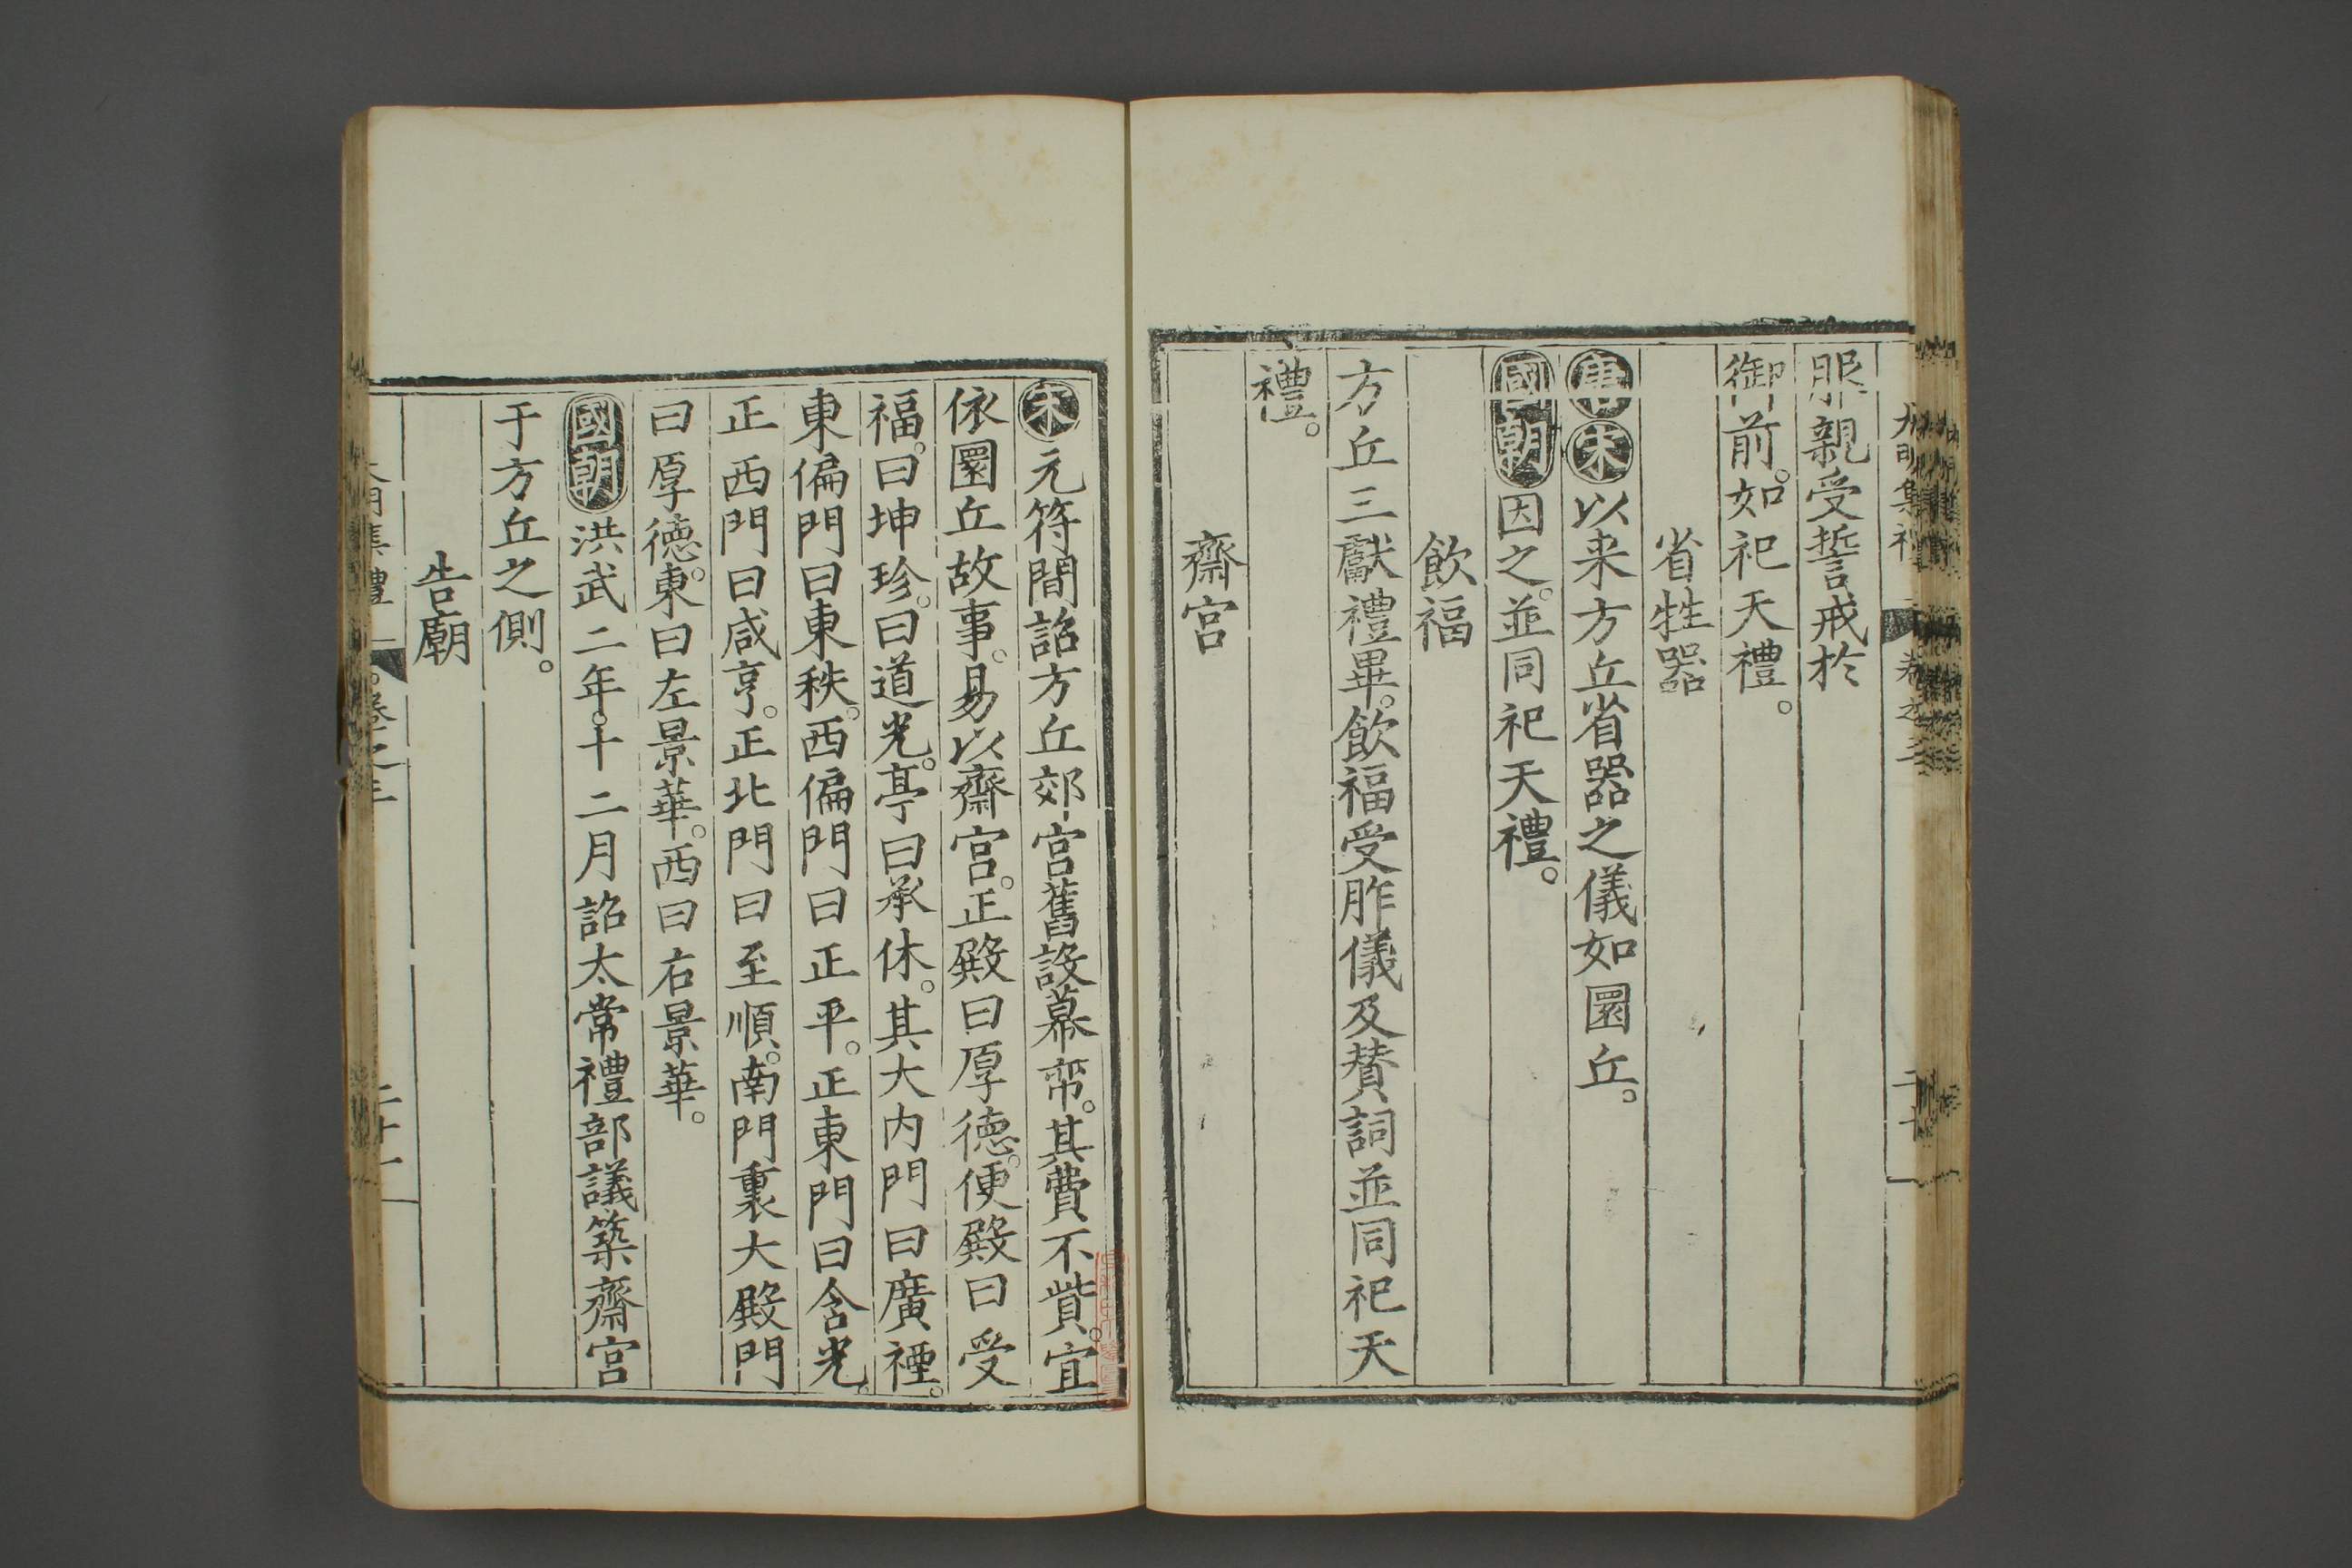 服親受誓戒於
御前。如祀天禮。
省牲器
唐宋以来方丘省器之儀如圜丘。
國朝因之。並同祀天禮。
飲福
方丘三獻禮畢。飲福受胙儀及賛詞並同祀天
禮。
齋宫
宋元符間詔方丘郊宫舊設幕帟。其費不貲。宜
依圜丘故事。易以齋宫。正殿曰厚德。便殿曰受
福。曰坤珍。曰道光。亭曰承休。其大内門曰廣禋。
東偏門曰東秩。西偏門曰正平。正東門曰含光。
正西門曰咸亨。正北門曰至順。南門裏大殿門
曰厚德。東曰左景華。西曰右景華。
國朝洪武二年。十二月詔太常禮部議築齋宫
于方丘之側。
告廟
大明集禮 卷之三 二十一